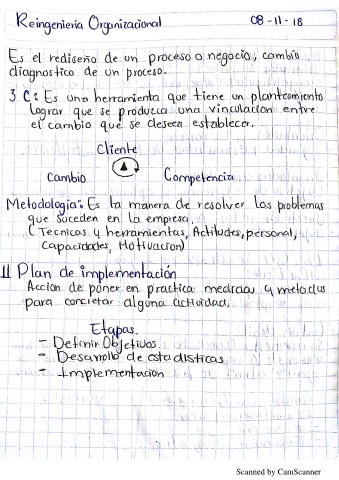 Reingenieria Organizacional 08-11-18
Es el rediseño de un proceso o negocio, cambio
diagnostico de un proceso.
3 C: Es una herramienta que tiene un planteamiento
lograr que se produzca una vinculacion entre
el cambio que se desea establecer.
Cliente
Cambio Competencia
Metodologia: Es la manera de resolver los problemas
que suceden en la empresa.
(Tecnicas y herramientas, Actitudes, personal,
Capacidades, Motivacion)
II Plan de implementación
Accion de poner en practica medidas y metodos
para concretar alguna actividad.
Etapas.
- Definir Objetivos.
- Desarrollo de estadisticas
- Implementacion
Scanned by CamScanner